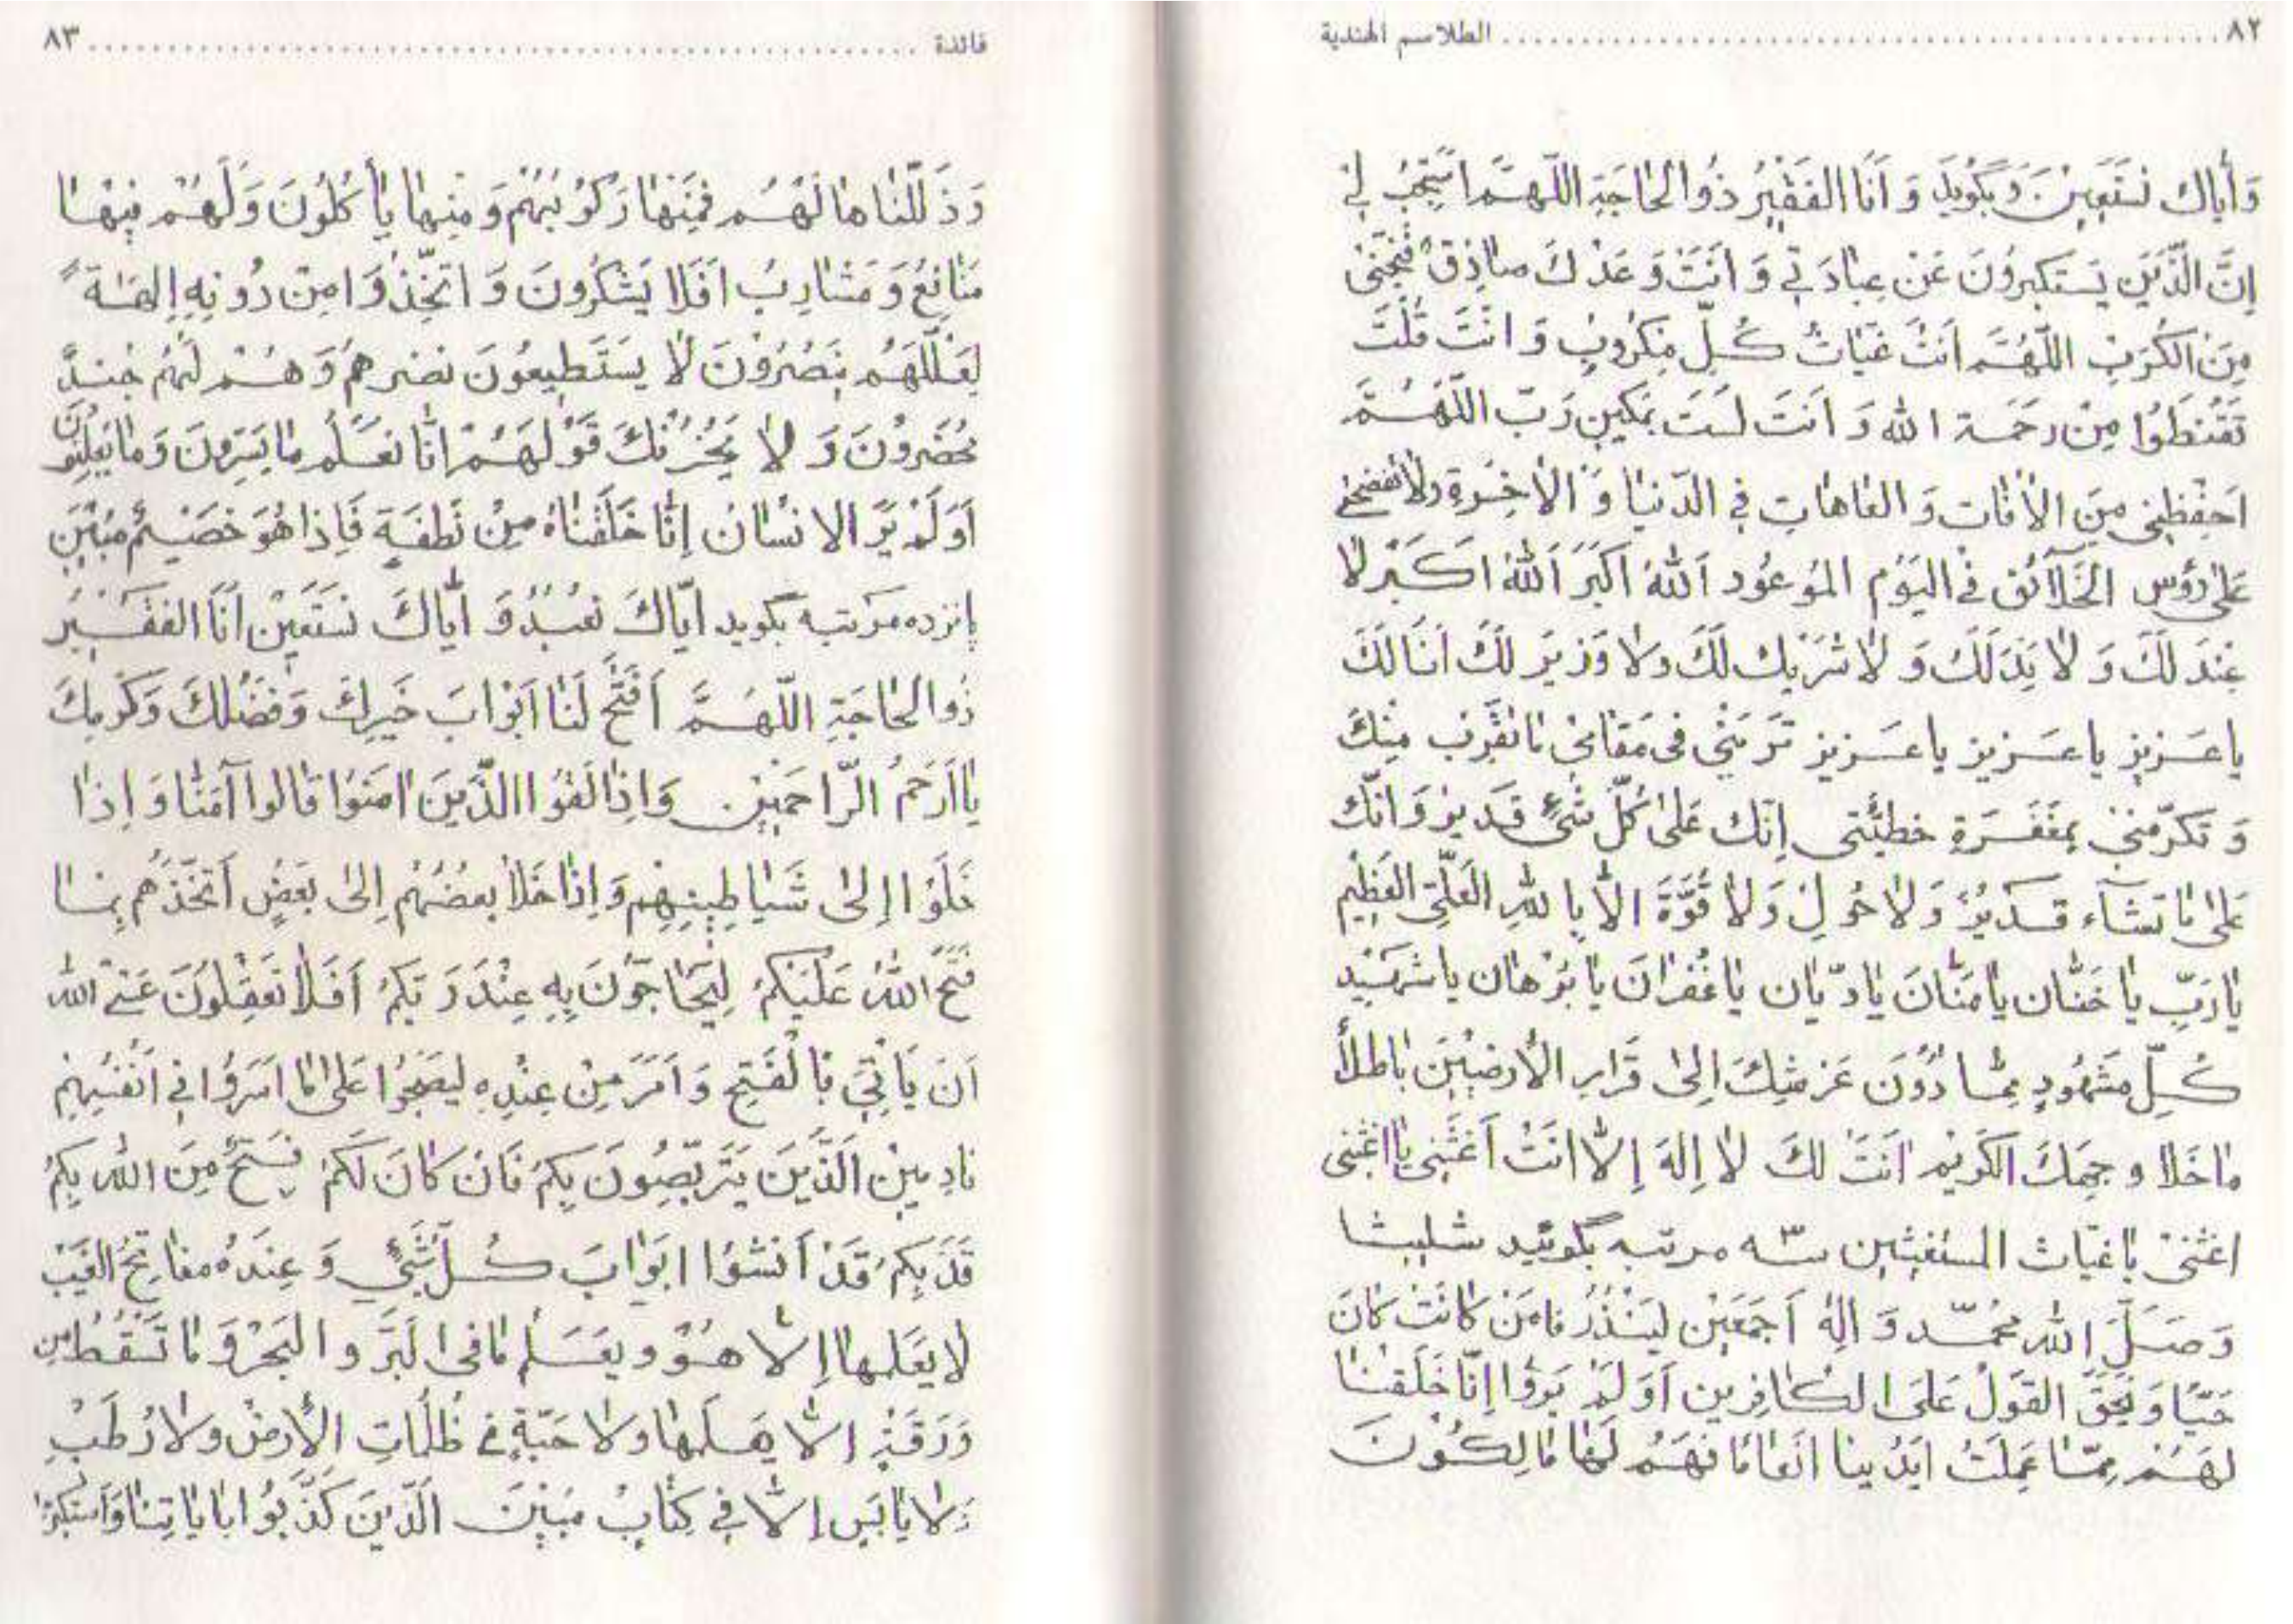 ٨٢ ........ الطلاسم الهندية
وَأيّاك نستَعِين وَ بگويد وَ اَنَا الفَقيُر ذُوالحاجَةِ اللّهمَّ استَجِبُ لي
اِنَّ الَّذينَ يَستَكبِروُنَ عَن عِبادَتي وَ اَنتَ وَعَدْكَ صادِق فَنَجّنى
مِنَ الكُرَبِ اللّهُمَّ اَنتَ غَياثُ كُلِّ مَكرُوبٍ وَ انتَ قُلتَ
تَقنطَوُا مِن رحَمَة الله وَ اَنتَ لست رَبّ اللّهُمَّ
احفِظنِي مِنَ الأفات وَ العاهاتِ في الدّنيا وَ الاخِرَةِ ولا تفضحنى
عَلى رؤس الخَلآئق في اليَوْم الموعوُد اَللهُ اَكبَرَ اَللهُ اَكبَر لا
عِندَ لَكَ وَ لا لَكَ وَ لا شَرَيك لَكَ ولا وَزيرَ لَكَ اَنَا لَكَ
يا عَزيز يا عَزيز يا عَزيز فى مَقامى مِنكَ
وَ تكرّمنى بمغفَرَةِ خطيئَتى اِنّك عَلى كُلّ شَئٍ قَديرٌ وَ انّك
عَلى ما تشآء قَديرٌ وَ لا حُولَ وَ لا قُوّةَ الاّ بِاللهِ العَلّى العَظيم
يا رَبّ يا حَنّان يا مَنّانَ يا دَيّان يا غُفرانَ يا بُرهان يا شَهيد
كُلّ مَشهُودٍ مِمّا دُونَ عَرشِكَ اِلى قَرارِ الأرَضينَ باطلاً
ما خَلا وجهِكَ الكَريم اَنتَ لكَ لا اِلهَ اِلاّ اَنتَ اَغثنى يا اغثنى
اغثنى يا غياث المستغيثين سه مرتبه بگوئيد شليثا
وَ صَلَّ الله محمّد وَ الِه اَجمَعَين ليُنذُرَ مَن كانَت كانَ
حَيّاً وَ يَحِقَّ القَولُ عَلَى الكافِرين اَوَلَم يَروَا اِنّا خَلَقنا
لَهُم مِمّا عَمِلَتْ ايَدْينا اَنعاماً فَهُم لَها مالِكوُنَ
٨٣ ........ فائدة
وَ ذَلَّلنا ها لَهُم فَمِنَها رَكوُ بُهُمْ وَ مِنها يأكُلُونَ وَ لَهُم فيها
مَنافعُ وَ مَشارِبُ اَفَلا يَشكُرونَ وَ اتَّخِذوُا مِن دوُنِهِ الِهَةً
لَعَلَّلهَم يَنصُرُونَ لا يَستَطيعُونَ نصَرهُم وَ هُم لَهُم جُندٌ
مُحضَروُنَ وَ لا يَحُزنكَ قَوْلهَمُ انّا نعَلَم ما يَسِرّونَ وَ ما يعلِنُون
اَوَلَم يَرَ الانسانُ اِنّا خَلَقناهُ مِنْ نُطفَةٍ فَاِذا هُوَ خَصَيم مُبين
پانزده مَرَتبه بگويد اَيّاكَ نعُبدُ وَ اَيّاكَ نستَعَين اَنَا الفَقَير
ذُوالحاجَةِ اللّهُمَّ اَفتَح لَنا اَبوابَ خَيرِكَ وَ فضَلكَ وَ كَرَمِكَ
يا اَرَحمُ الرّاحَمين وَ اِذا لَقوُا الذَّينَ امَنوُا قالوا آمَنّا وَ اِذا
خَلَوْا اِلى شَياطينِهِم وَ اِذا خَلا بعضُهُم اِلى بَعَضٍ اَتحدِّثوُهُم بِما
فَتَحَ اللهُ عَلَيكمُ ليحاجّوُنَ بِهِ عِنْدَ رَبَكمُ اَفَلا تعَقِلُونَ عَسَى الله
اَن يَأتي باَلفَتحِ وَ اَمَرَ مِن عِندِهِ ليصبحُوا عَلى ما اَسَرّوُا في اَنفُسِهِم
نادِمين الَّذَينَ يَتَربّصِوُنَ بِكمُ فَان كانَ لَكمُ فَتحٌ مِنَ الله بِكمُ
قَدَ بِكمُ قَدْ اَنشؤا ابَوابَ كُلّ شَئٍ وَ عِندَهُ مفاتِحُ الغَيب
لا يعَلمها اِلاّ هُوَ و يعَلَم ما فى البَرّ و البَحَر وَ ما تَسقُطُ مِن
وَرَقَةٍ اِلاّ يَعلَمها ولا حَبّةٍ في ظُلُماتِ الأرضْ ولا رُطَبْ
وَلا يابَس اِلاّ في كِتابُ مُبيَن الّذينَ كَذَّبوُا باياتِنا وَ استكبرَوُا